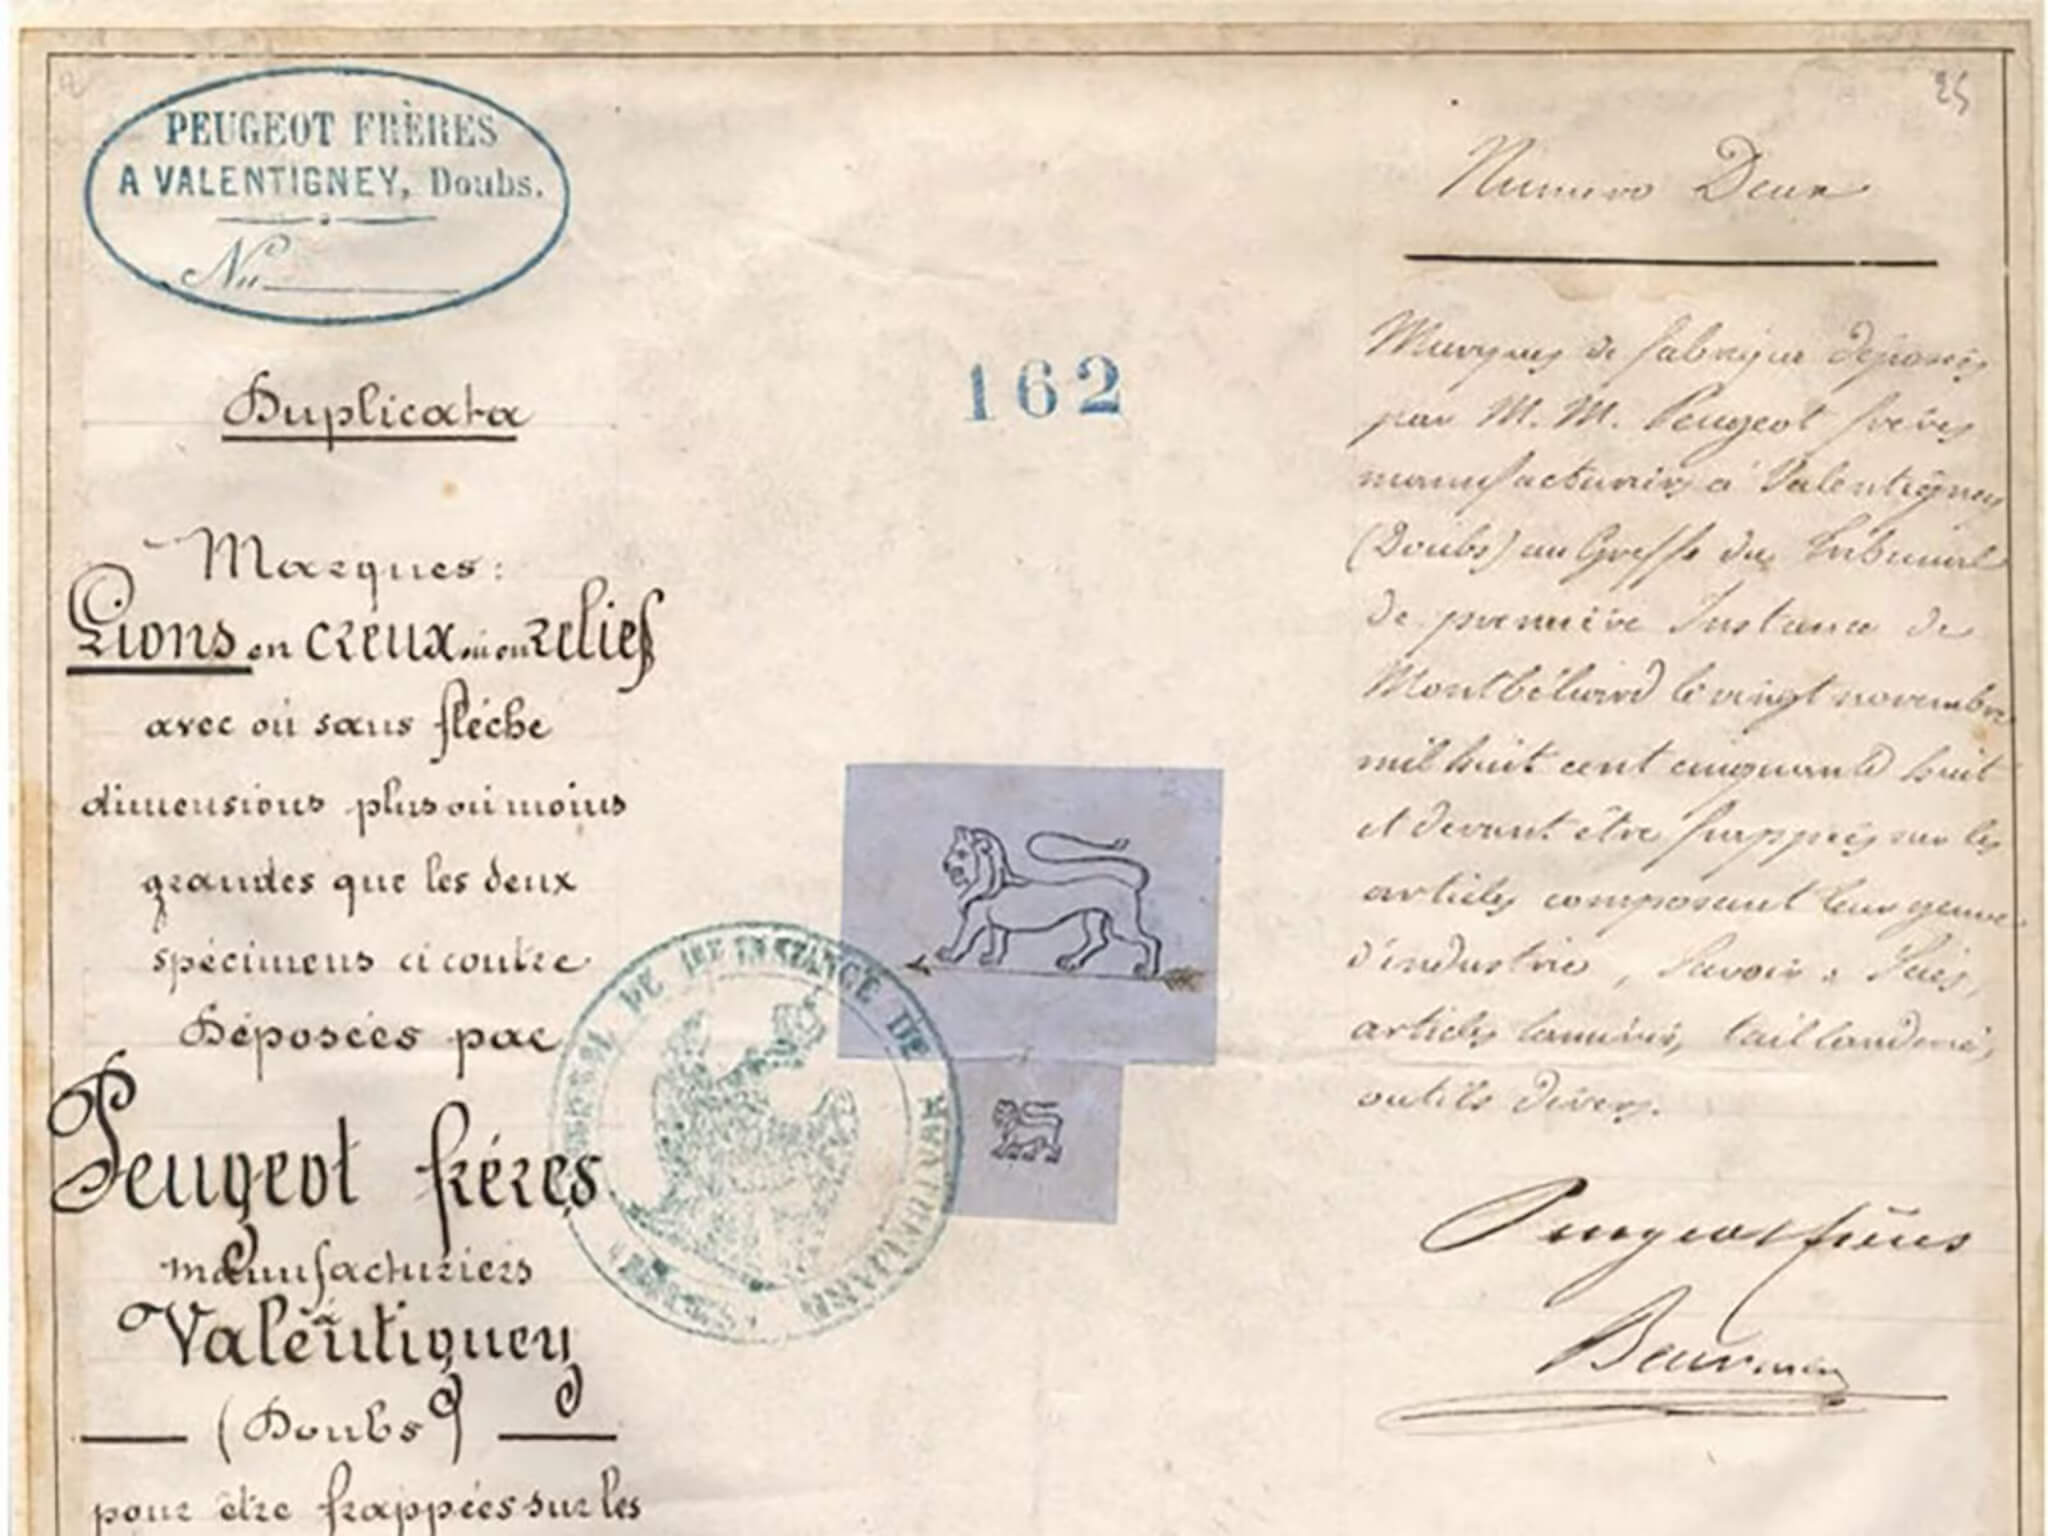 PEUGEOT FRÈRES
A VALENTIGNEY, Doubs.
No
Duplicata
Marques:
Lions en creux ou en relief
avec ou sans fléche
dimensions plus ou moins
grandes que les deux
spécimens ci contre
Déposées par
Peugeot fréres
manufacturiers
à
Valentigney
(Doubs)
pour être frappées sur les
162
TRIBUNAL DE 1RE INSTANCE DE MONTBELIARD
25
Numéro Deux
Marques de fabrique déposées
par M. M. Peugeot frères
manufacturiers à Valentigney
(Doubs) au Greffe du Tribunal
de première Instance de
Montbéliard le vingt novembre
mil huit cent cinquante huit
et devant être frappées sur les
articles composant leur genre
d'industrie, Savoir : Scies,
articles laminés, taillanderie,
outils divers.
Peugeot frères